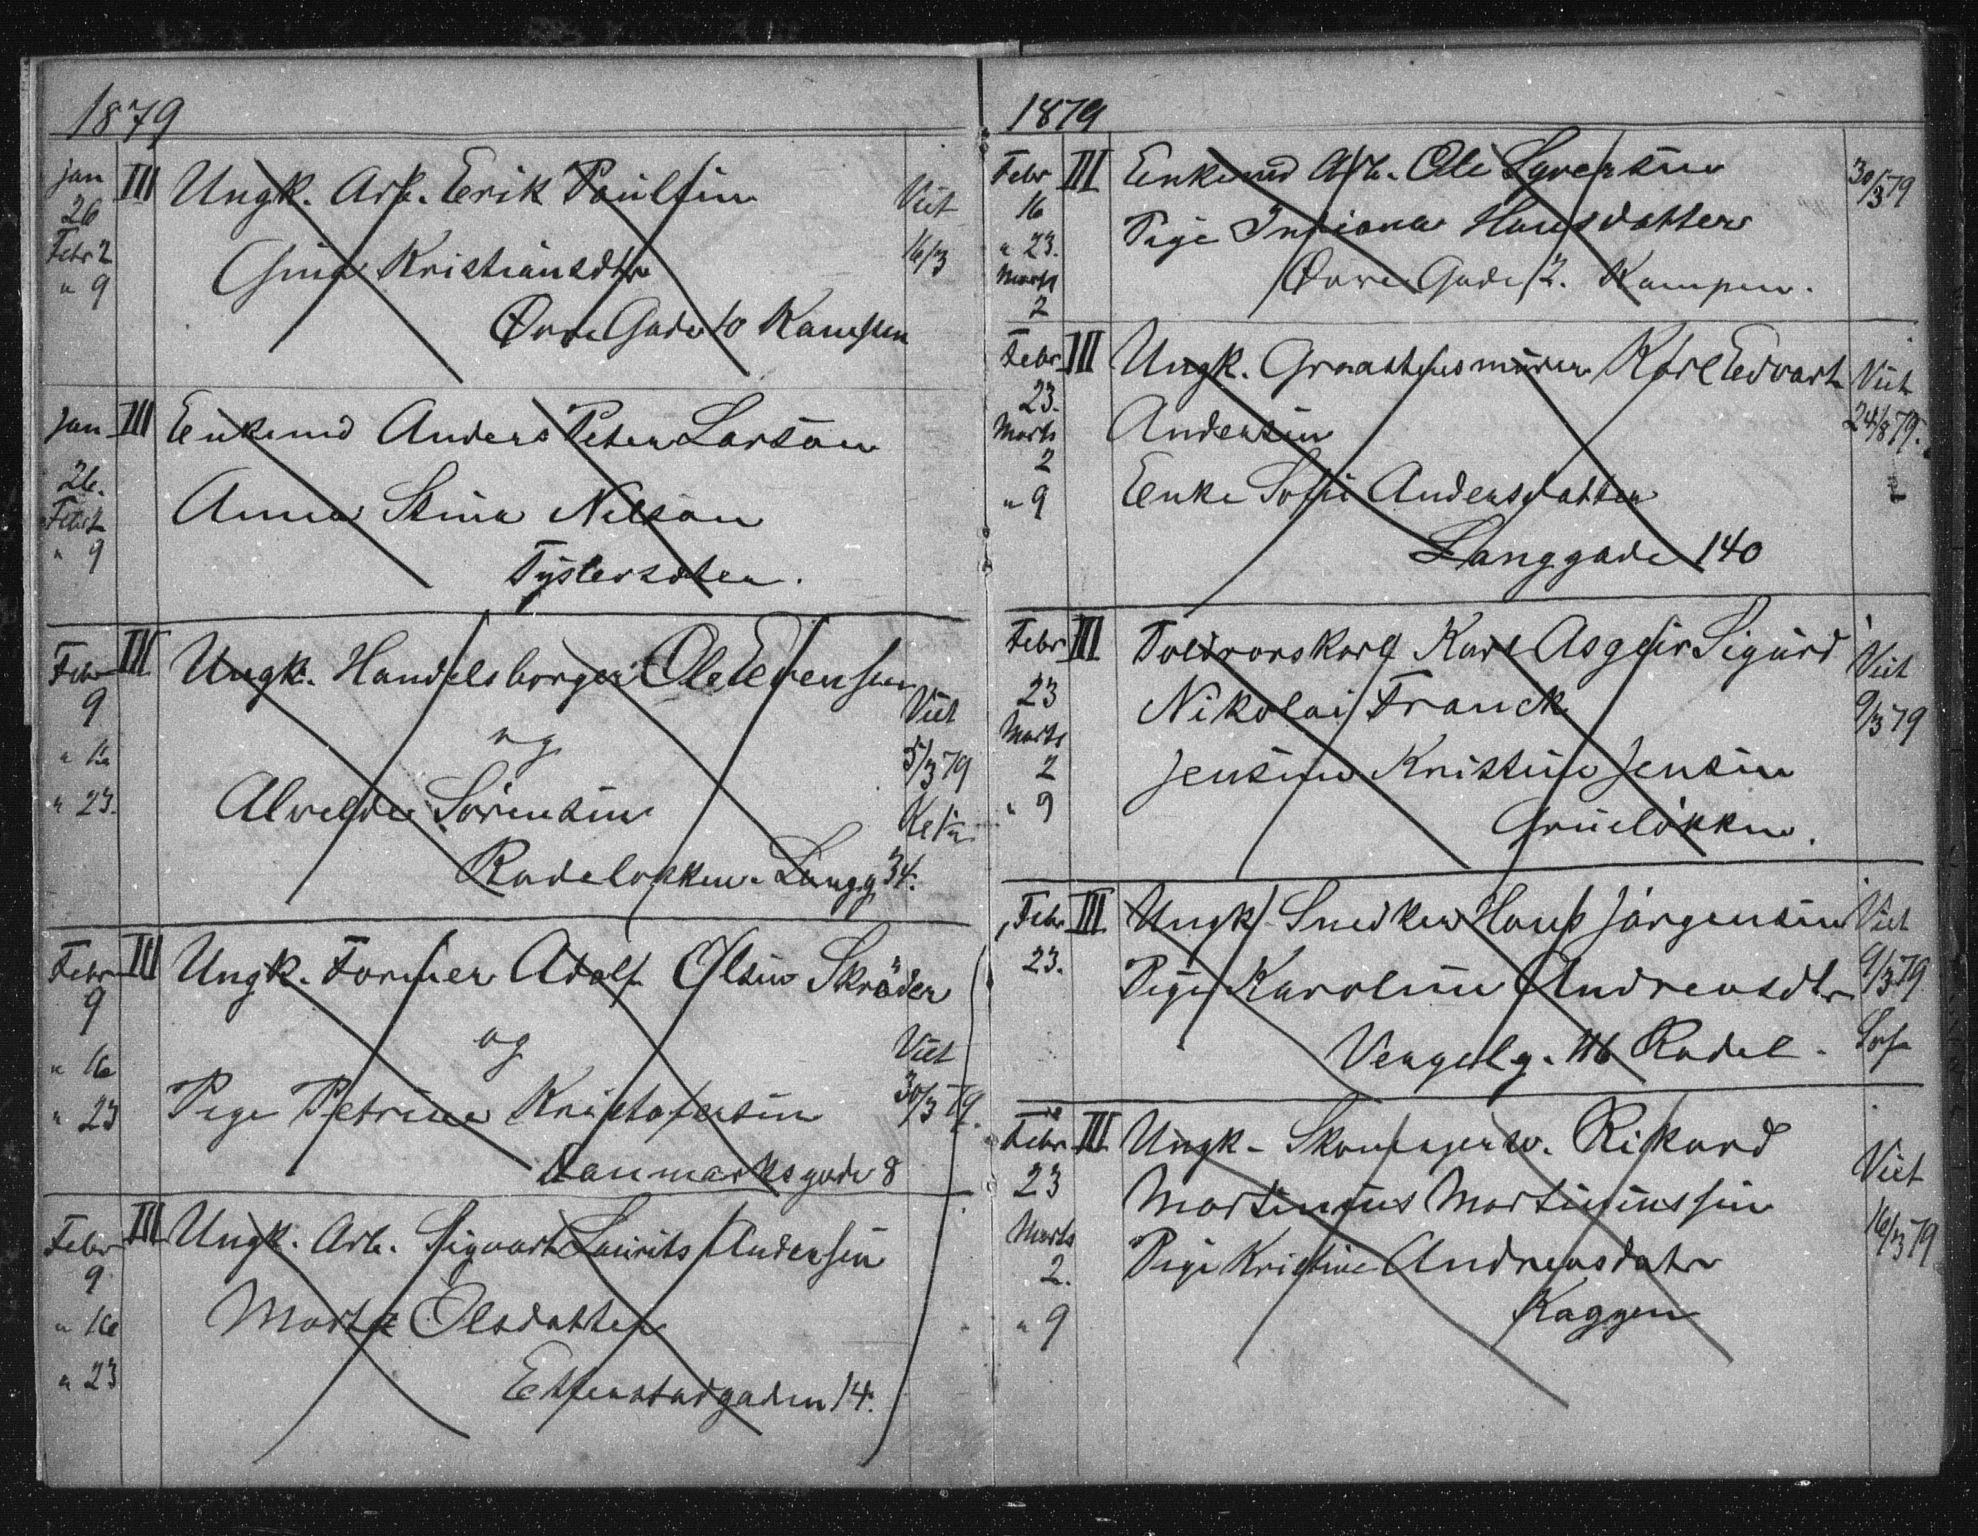 1879
Jan III Ungk. Arb. Erik Paulsen
26
Febr 2
" 9
Gina Kristiansdtr
Øvre Gade 10 Kampen
Viet
16/3
Jan III Enkemd Anders Peter Larson
26.
Febr 2
" 9
Anna Stina Nelson
Febr III Ungk. Handelsborger Ole Evensen
9
" 16
" 23.
og
Alvilde Sørensen
Rodeløkken. Langg 34.
Viet
5/3 79
Febr III Ungk. Former Adolf Olsen Skrøder
9
" 16
" 23
og
Pige Petrine Kristofersen
Danmarksgade 8
Viet
30/3 79.
Febr III Ungk. Arb. Sigvart Laurits Andersen
9
" 16
" 23
Marte Olsdatter
14.
1879
Febr III Enkemd Arb. Ole Syversen
16
" 23.
Marts
2
Pige Indiana Hansdatter
Øvre Gade 2. Kampen.
30/3 79
Febr III Ungk. Graastensmurer Karl Edvart
23.
Marts
2
" 9
Andersen
Enke Sofie Andersdatter
Langgade 140
Viet
24/8 79.
Febr III Toldrorskarl Karl Asgeir Sigurd
23
Marts
2
" 9
Nikolai Franck
Jensine Kristine Jensen
Grüeløkken.
Viet
9/3 79
Febr III Ungk. Snedker Hans Jørgensen
23.
Pige Karoline Andreasdtr
116 Rodel.
Viet
9/3 79
Febr III Ungk. Rikard
23
Marts
2.
" 9
Martinius Martiniussen
Pige Kristine Andreasdatr
Kaggen
Viet
16/3 79